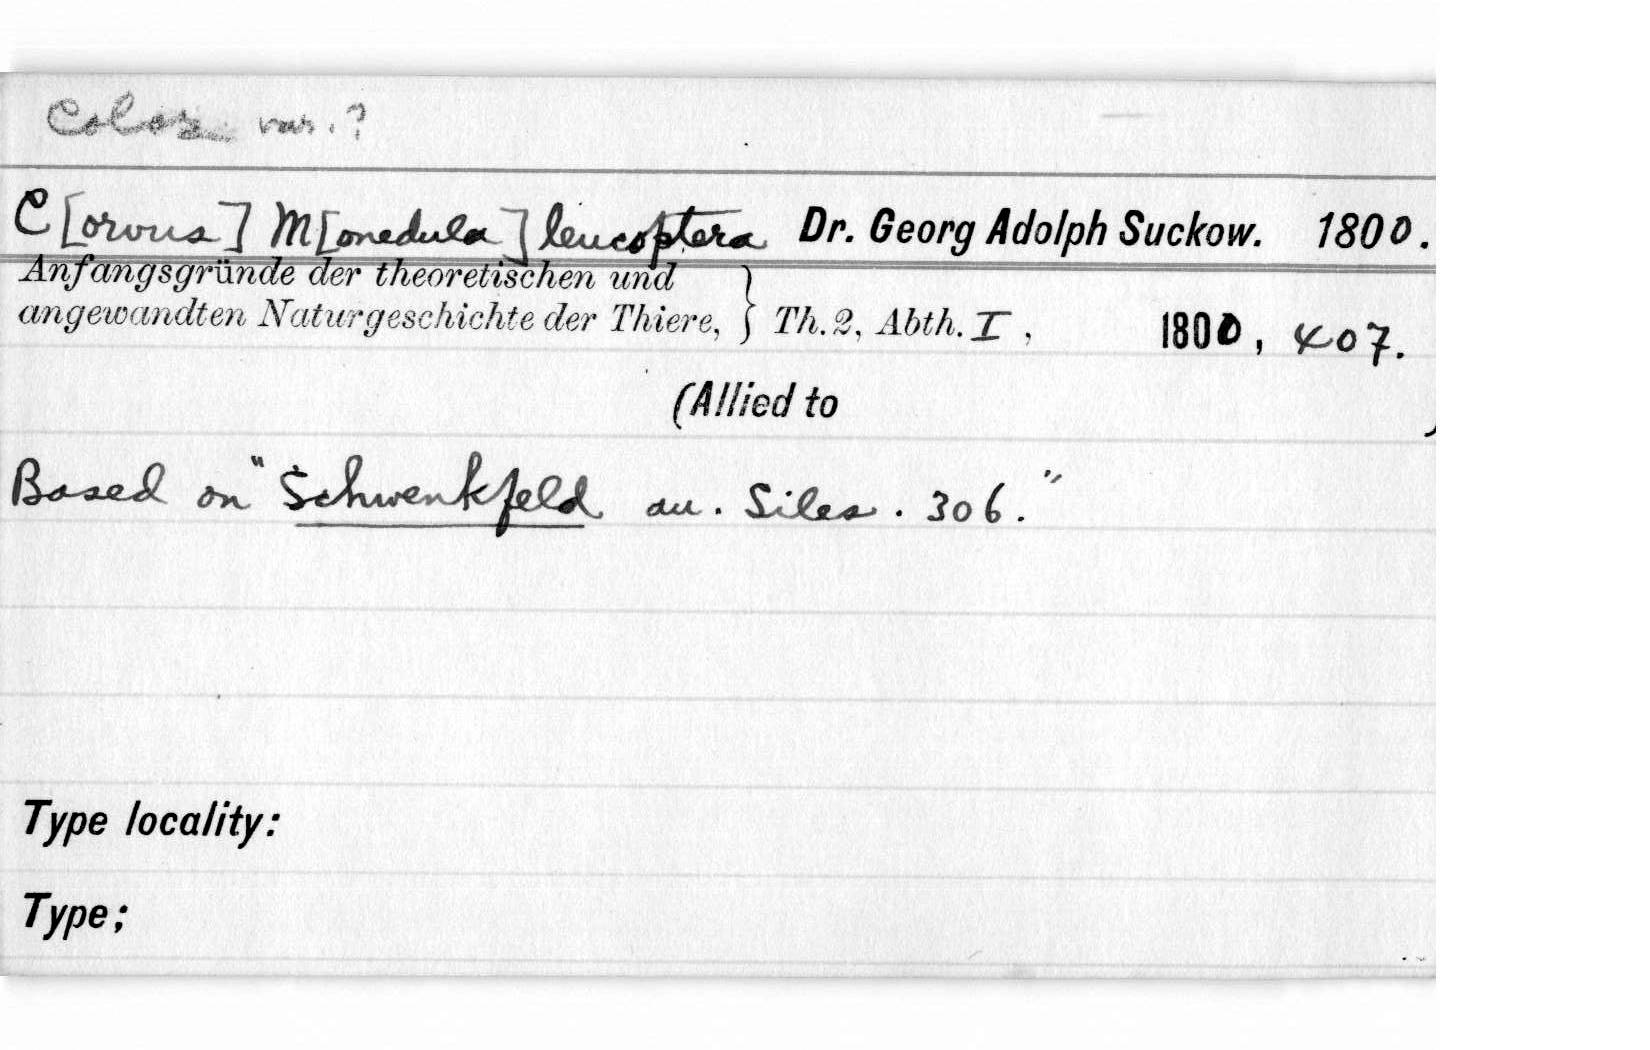 Color var.?
C[orvus] M[onedula] leucoptera Dr. Georg Adolph Suckow. 1800.
Anfangsgründe der theoretischen und
angewandten Naturgeschichte der Thiere, } Th. 2, Abth. I, 1800, 407.
(Allied to )
Based on "Schwenkfeld au. Siles. 306."
Type locality:
Type;